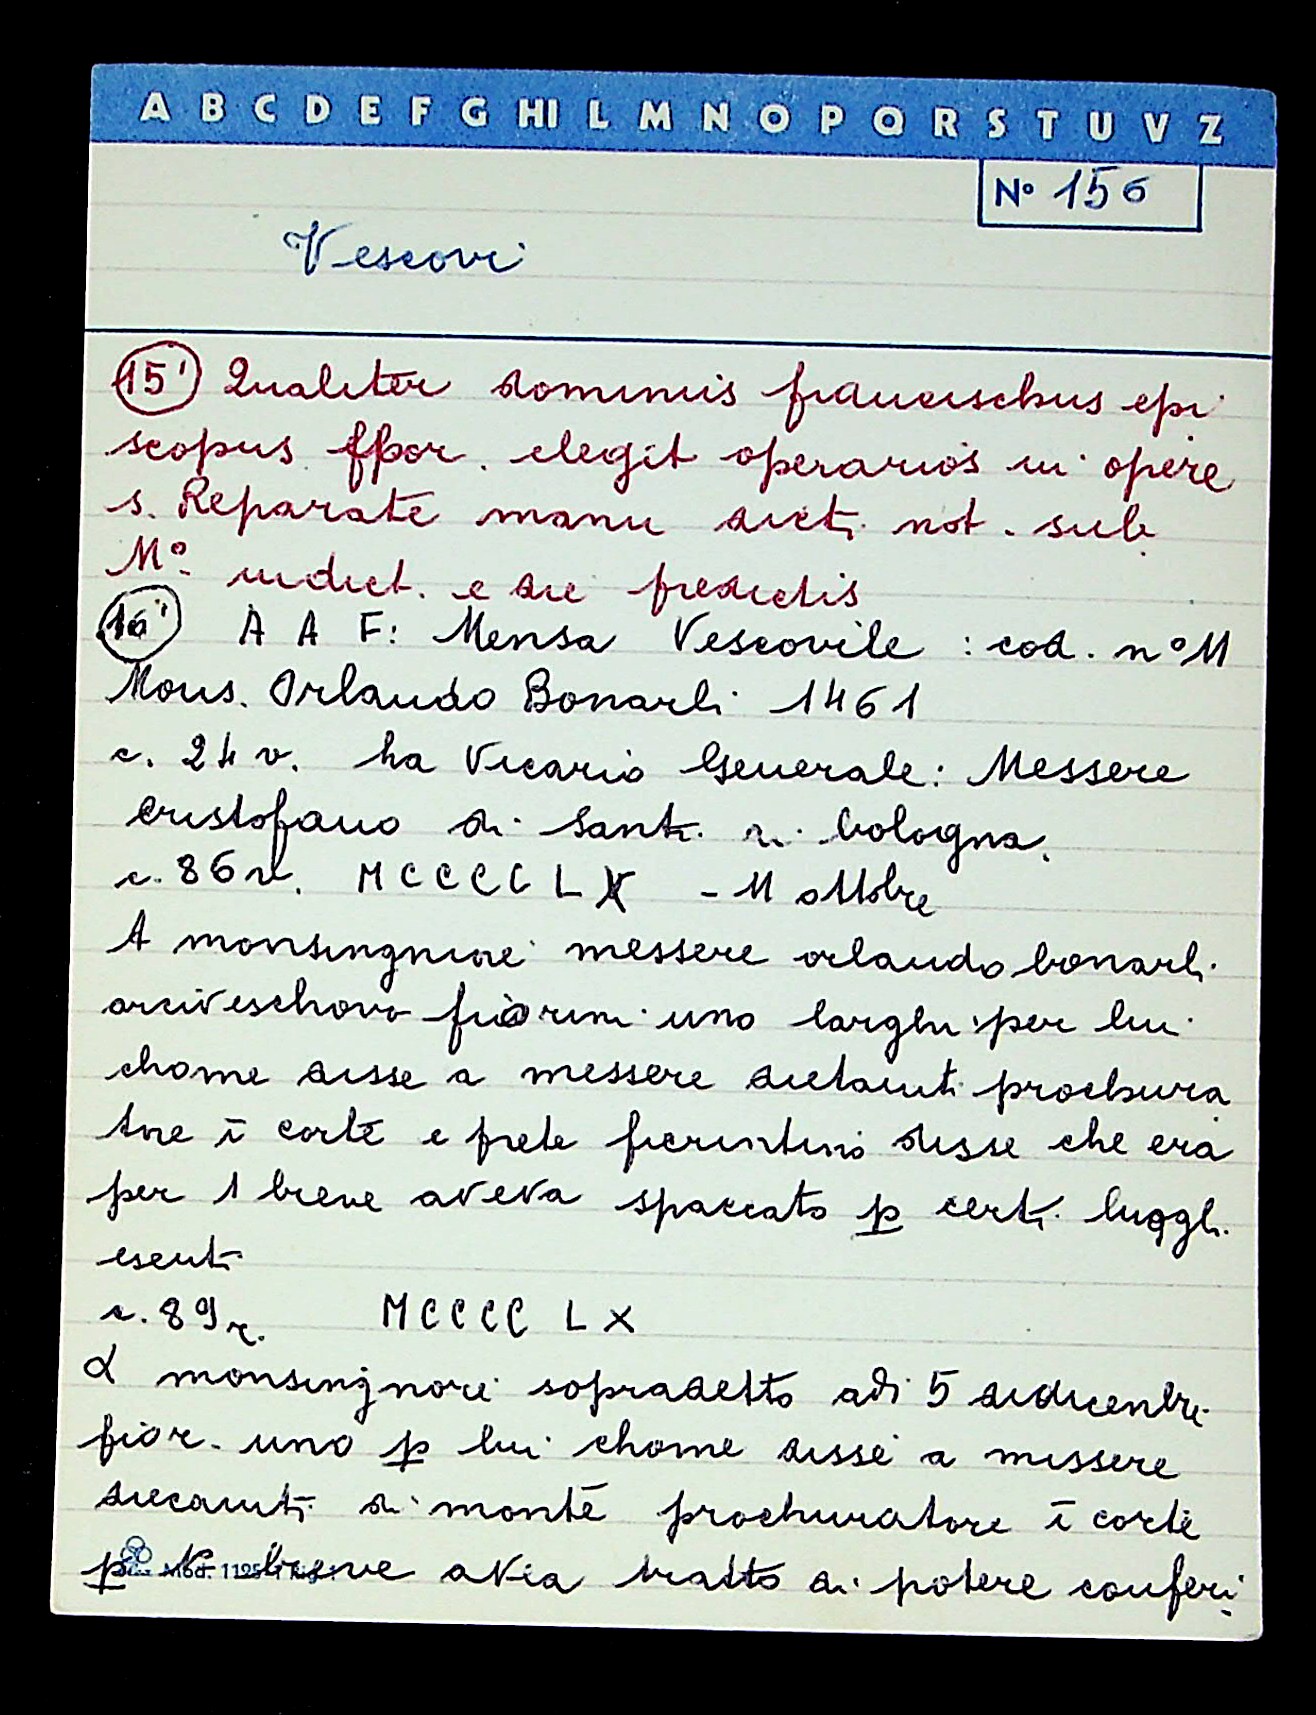 A B C D E F G HI L M N O P Q R S T U V Z
No 156
Vescovi
15' Qualiter dominus franceschus epi
scopus ffor. elegit operarios in opere
s. Reparate manu dicti not. sub
Mo indict. e die predictis
16' A A F: Mensa Vescovile : cod. no 11
Mons. Orlando Bonarli 1461
c. 24 v. ha Vicario Generale: Messere
Cristofano di Santi di bologna.
c. 86 v. MCCCC LX - 11 ottobre
A monsingniore messere orlando bonarli
arciveschovo fiorini uno larghi per lui
chome disse a messere prochura
tore ī corte e prete fiorentino disse che era
per 1 breve aveva spaccato p certi luoghi
esenti
c. 89 r. MCCCC LX
A monsingnore sopradetto adi 5 didicenbre
fior. uno p lui chome disse a missere
diecaiuti di monte prochuratore ī corte
p breve avia tratto di potere conferi
Mod. 1125